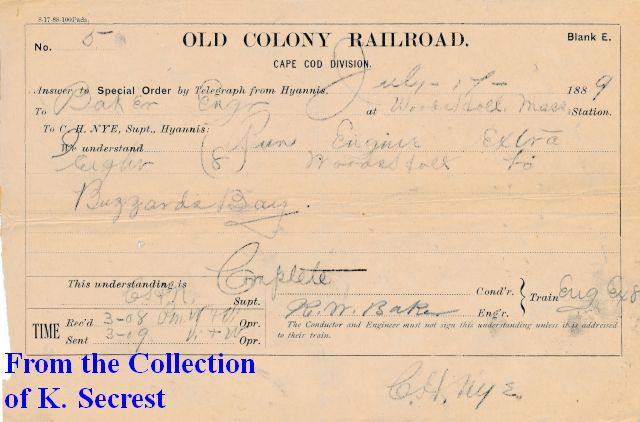 8-17-88-100Pads.
No. 5 OLD COLONY RAILROAD. Blank E.
CAPE COD DIVISION.
Answer to Special Order by Telegraph from Hyannis, July 17 1889
To Baker Engr at Woods Holl. Mass. Station.
To C. H. NYE, Supt., Hyannis:
We understand Run Engine Extra
Eight (8) Woods Holl to
Buzzards Bay.
This understanding is Complete Cond'r.
C.H.N. Supt. R. W. Baker Eng'r. Train Eng Ex 8
TIME Rec'd 3-08 Opr.
Sent 3-09 Opr.
The Conductor and Engineer must not sign this understanding unless it is addressed
to their train.
C. H. Nye.
From the Collection
of K. Secrest